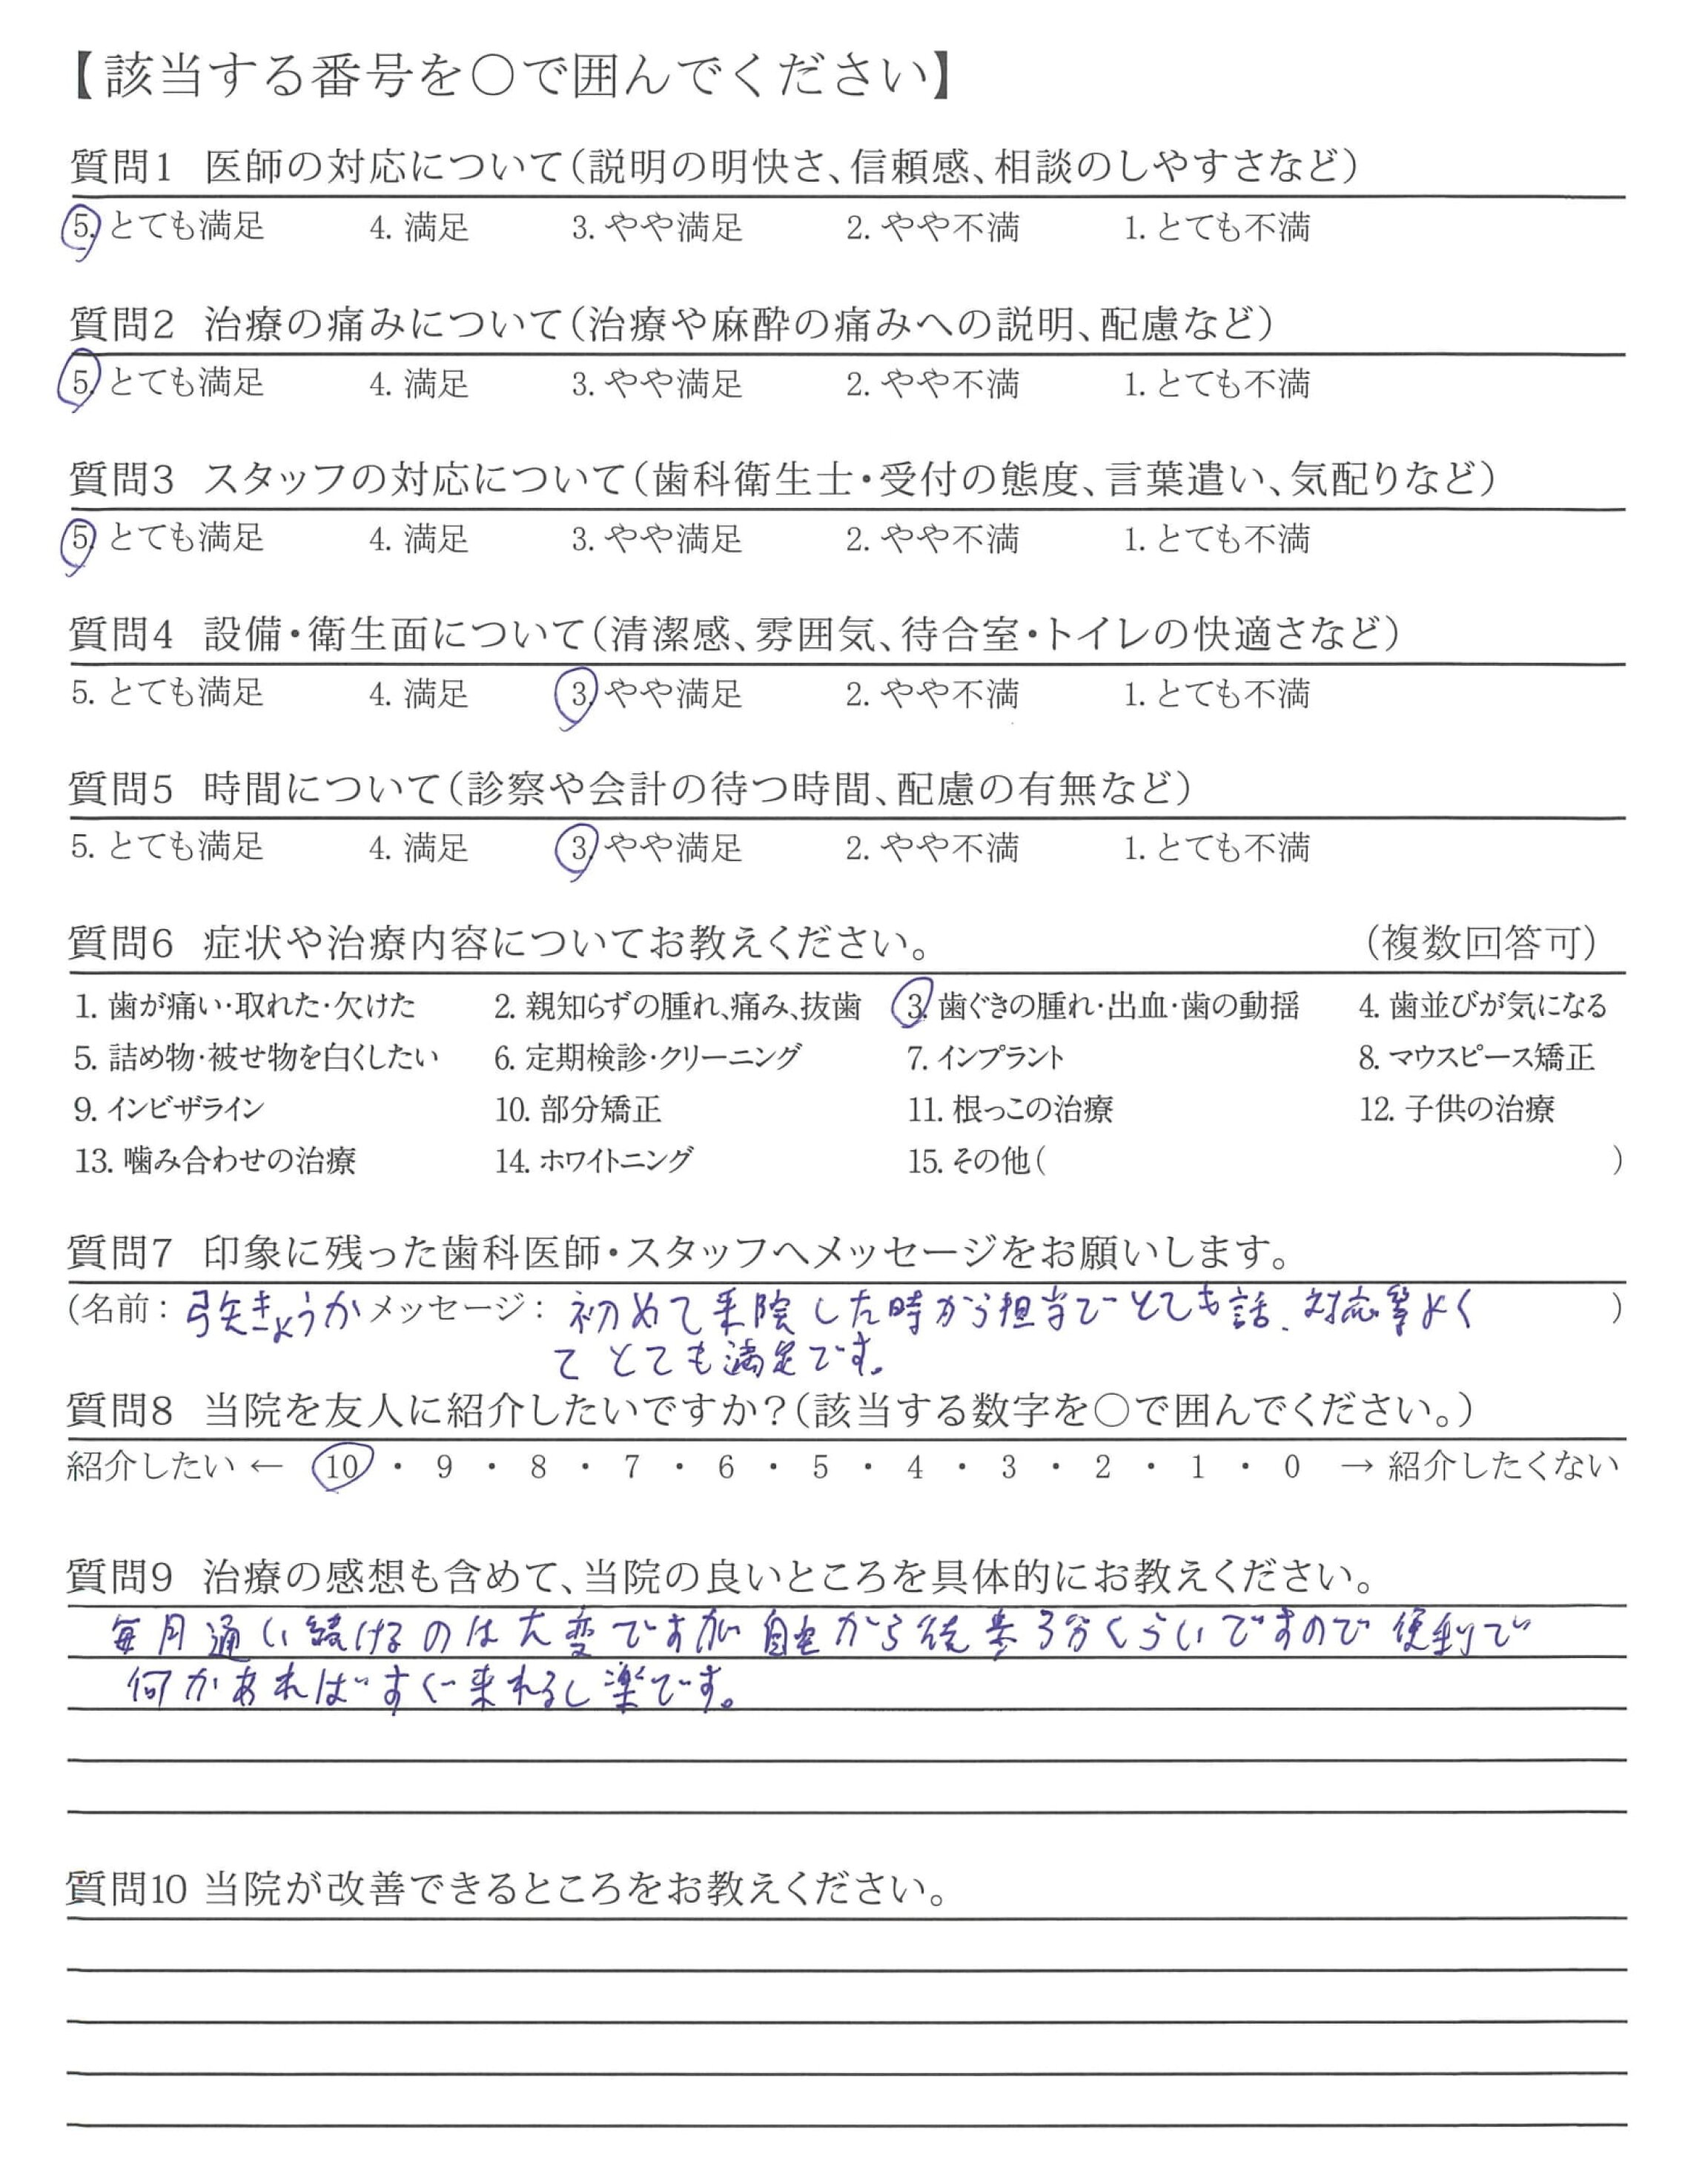 【該当する番号を〇で囲んでください】
質問1 医師の対応について(説明の明快さ、信頼感、相談のしやすさなど)
5. とても満足 4. 満足 3. やや満足 2. やや不満 1. とても不満
質問2 治療の痛みについて(治療や麻酔の痛みへの説明、配慮など)
5. とても満足 4. 満足 3. やや満足 2. やや不満 1. とても不満
質問3 スタッフの対応について(歯科衛生士・受付の態度、言葉遣い、気配りなど)
5. とても満足 4. 満足 3. やや満足 2. やや不満 1. とても不満
質問4 設備・衛生面について(清潔感、雰囲気、待合室・トイレの快適さなど)
5. とても満足 4. 満足 3. やや満足 2. やや不満 1. とても不満
質問5 時間について(診察や会計の待つ時間、配慮の有無など)
5. とても満足 4. 満足 3. やや満足 2. やや不満 1. とても不満
質問6 症状や治療内容についてお教えください。 (複数回答可)
1. 歯が痛い・取れた・欠けた 2. 親知らずの腫れ、痛み、抜歯 3. 歯ぐきの腫れ・出血・歯の動揺 4. 歯並びが気になる
5. 詰め物・被せ物を白くしたい 6. 定期検診・クリーニング 7. インプラント 8. マウスピース矯正
9. インビザライン 10. 部分矯正 11. 根っこの治療 12. 子供の治療
13. 噛み合わせの治療 14. ホワイトニング 15. その他( )
質問7 印象に残った歯科医師・スタッフへメッセージをお願いします。
(名前: 弓矢きょうか メッセージ: 初めて来院した時から担当でとても話、対応等よく )
てとても満足です。
質問8 当院を友人に紹介したいですか?(該当する数字を〇で囲んでください。)
紹介したい ← 10 ・ 9 ・ 8 ・ 7 ・ 6 ・ 5 ・ 4 ・ 3 ・ 2 ・ 1 ・ 0 → 紹介したくない
質問9 治療の感想も含めて、当院の良いところを具体的にお教えください。
毎月通い続けるのは大変ですが自宅から徒歩3分くらいですので便利で
何かあればすぐ来れるし楽です。
質問10 当院が改善できるところをお教えください。